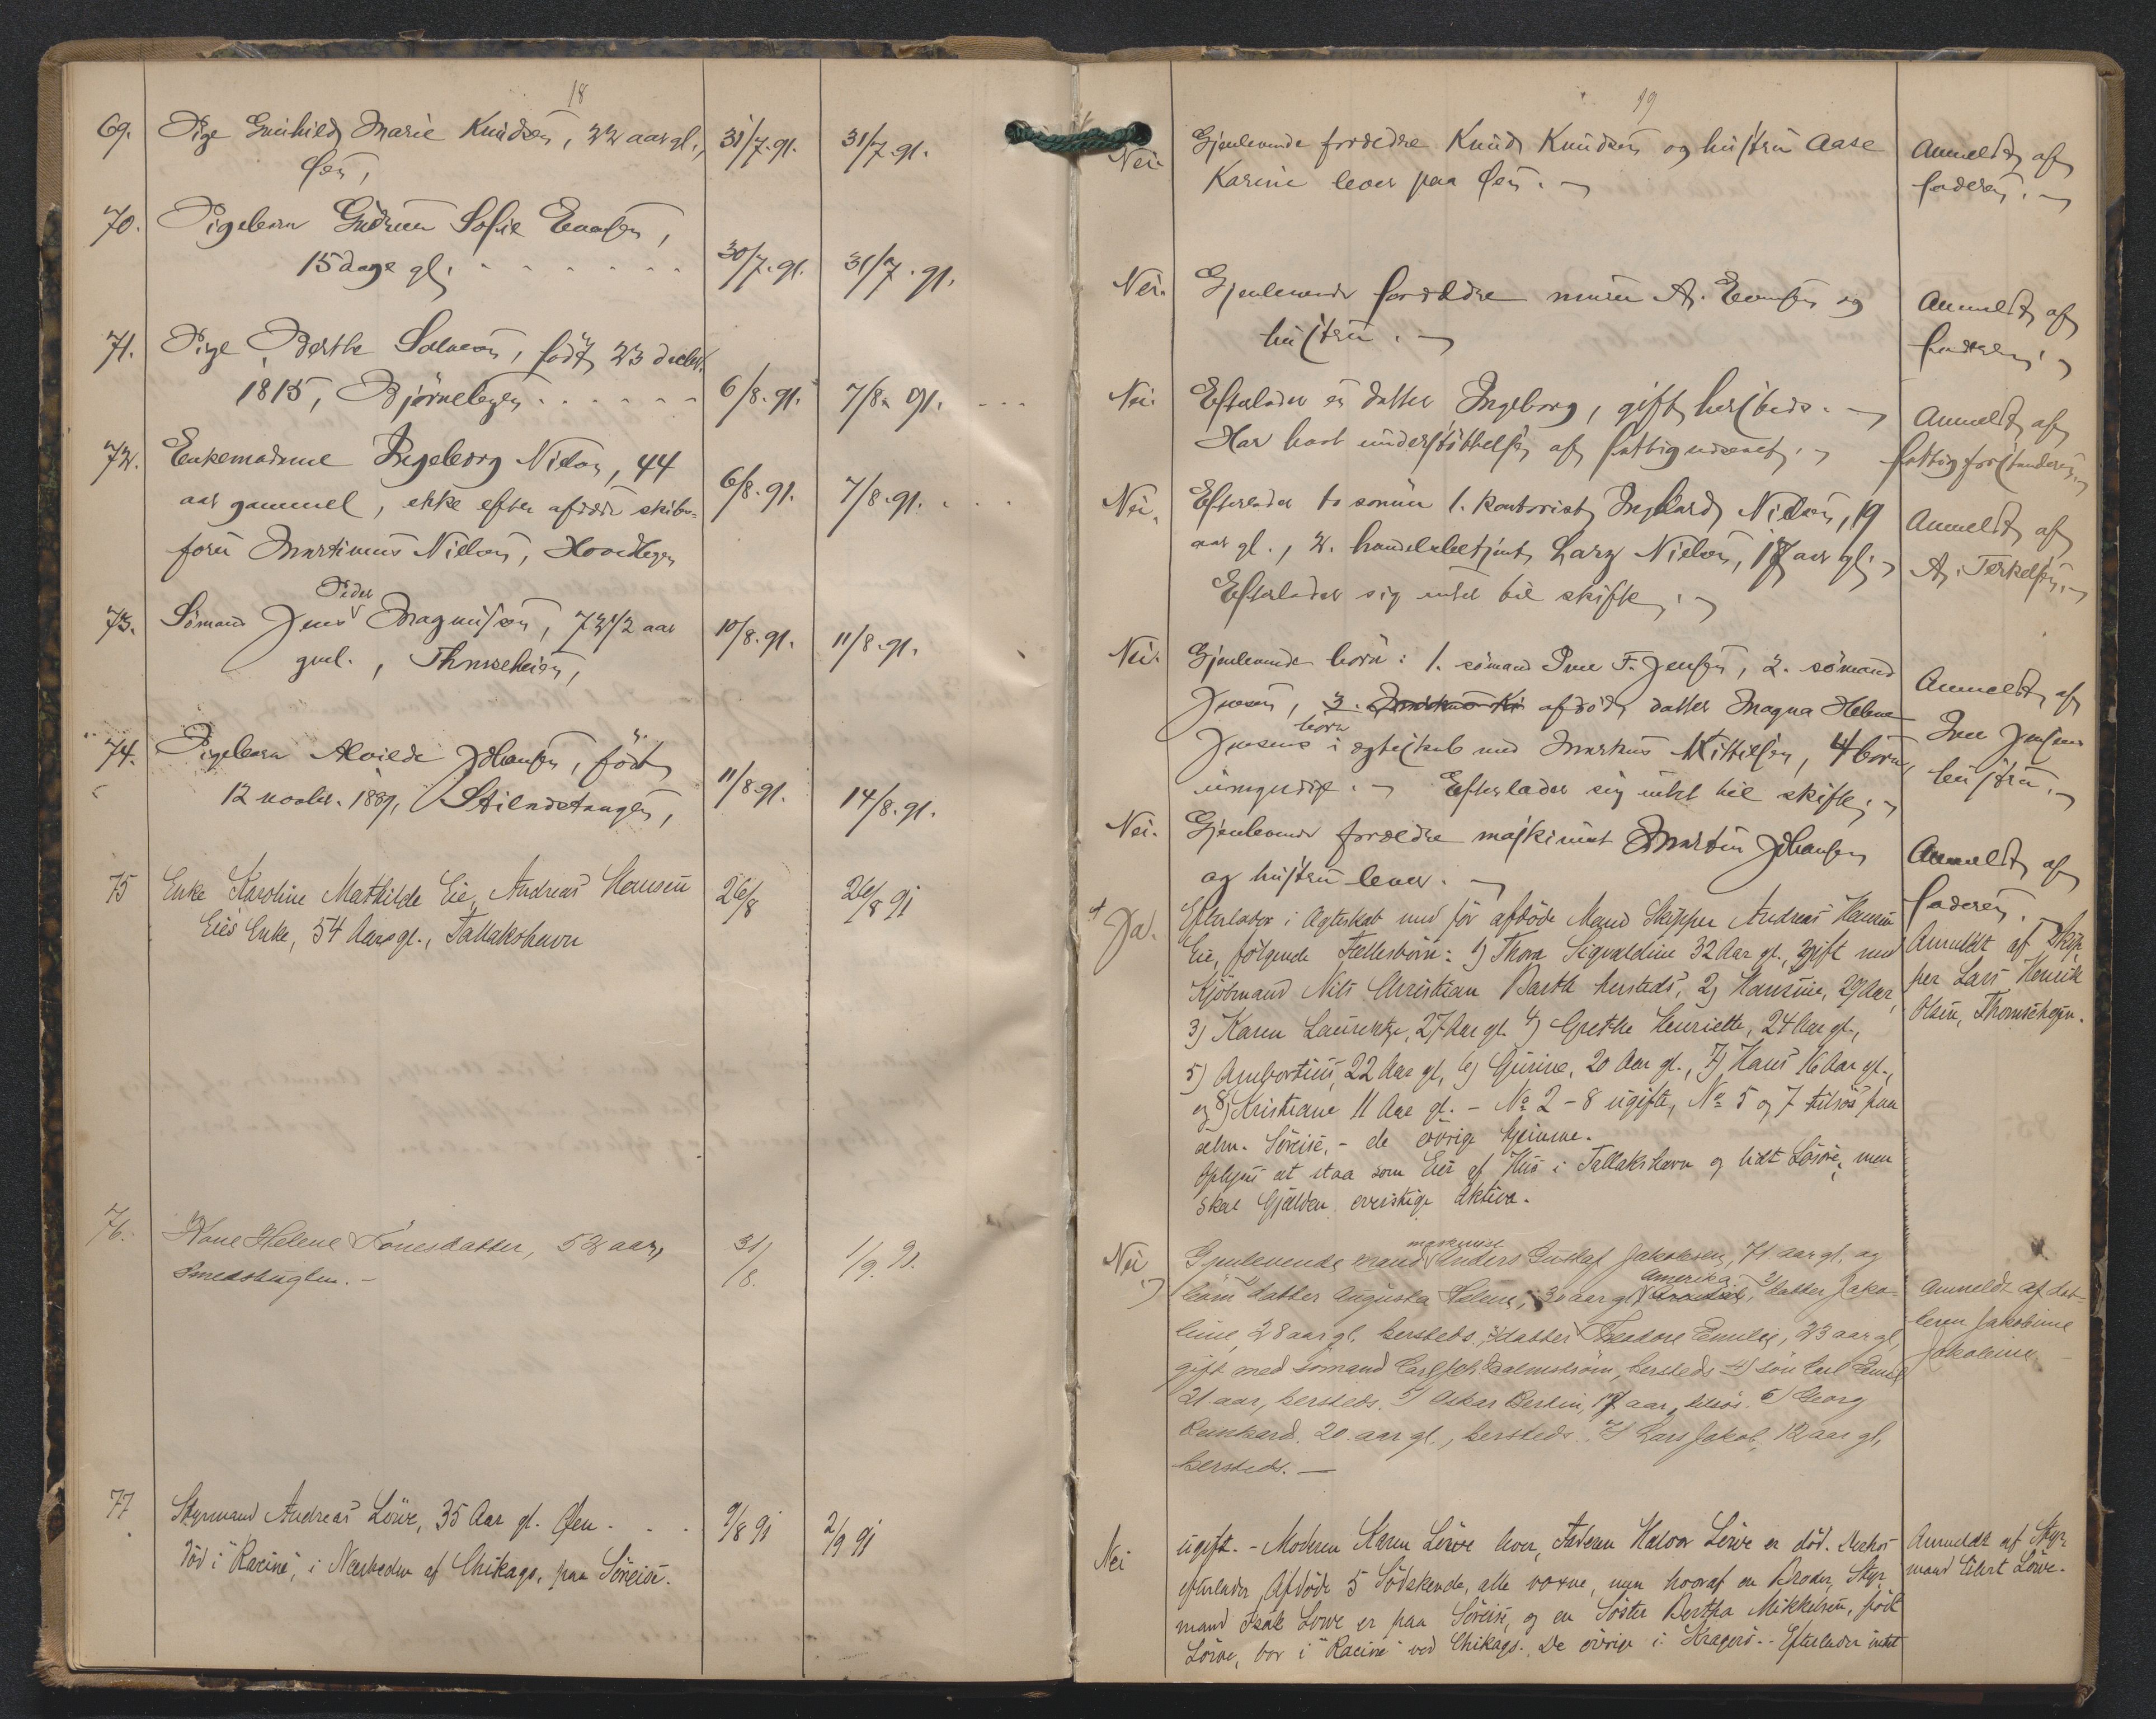 18
69. Pige Gunhild Marie Knudsen, 22 aar gl., 31/7.91. 31/7.91.
Øen,
70. Pigebarn Gudrun Sofie Evensen,
15 dage gl. 30/7.91. 31/7.91.
71. Pige Berthe Salveson, født 23 decbr.
1815, Bjørnebegen 6/8.91. 7/8.91.
72. Enkemadame Ingeborg Nilson, 44
aar gammel, enke efter afdøde skibs-
fører Martinius Nilson, 6/8.91. 7/8.91.
Peder
73. Sømand Jens Magnuson, 72 1/2 aar
gml., Thomeheien, 10/8.91. 11/8.91.
74. Pigebarn Alvilde Johansen, født
12 novbr. 1889, Stilnestangen, 11/8.91. 14/8.91.
75 Enke Karoline Mathilde Eie, Andreas Hansen 26/8 26/8 91
Eies Enke, 54 Aar gl., Tallakshavn
76. Kone Helene Tønesdatter, 52 aar, 31/8. 1/9.91.
Smedsbugten.-
77 Styrmand Andreas Löwe, 35 Aar gl. Øen 9/8 91 2/9 91
död i "Racine", i Nærheden af Chikago, paa Söreise.
19
Nei. Gjenlevende forældre Knud Knudsen og hustru Aase
Karine lever paa Øen.
Anmeldt af
faderen.
Nei. Gjenlevende forældre murer A. Evensen og
hustru.
Anmeldt af
faderen.
Nei. Efterlader en datter Ingeborg, gift hersteds.
Har havt understøttelse af fattigvæsenet.
Anmeldt af
fattigforstanderen.
Nei. Efterlader to sønner 1. kontorist Ingvard Nilson, 19
aar gl., 2. handelsbetjent Lars Nilson, 17 aar gl.
Efterlader sig intet til skifte.
Anmeldt af
A. Terkelsen.
Nei. Gjenlevende børn: 1. sømand Ine F. Jensen, 2. sømand
Jensen, 3. afdøde datter Magna Helene
børn
Jensens i ægteskab med Markus Kittilsen, 4 børn,
umyndige. Efterlader sig intet til skifte.
Anmeldt af
Ine Jensens
hustru.
Nei. Gjenlevende forældre maskinist Martin Johansen
og hustru lever.
Anmeldt af
faderen.
Ja. Efterlader i Ægteskab med för afdöde Mand Skipper Andreas Hansen
Eie, fölgende Fællesbörn: 1) Thora Sigvaldine 32 Aar gl., gift med
Kjöbmand Nils Christian Barth hersteds, 2) Hansine, 29 Aar,
3) Karen Laurentze, 27 Aar gl. 4) Grethe Henriette, 24 Aar gl.,
5) Ambortius 22 Aar gl, 6) Gurine, 20 Aar gl., 7) Hans 16 Aar gl.,
og 8) Kristiane 11 Aar gl. - No 2-8 ugifte, No 5 og 7 tilsös paa
alm. Söreise, - de övrige hjemme.
Oplyses at staa som Eier af Hus i Tallakshavn og lidt Lösöre, men
skal Gjælden overstige Aktiva.
Anmeldt af Skip-
per Lars Henrik
Olsen, Thomsehejen.
Nei Gjenlevende mand Anders Gustaf Jakobsen, 71 aar gl. og
1) barn datter Augusta Helene, 30 aar gl. Amerika, 2) datter Jako-
bine, 28 aar gl. hersteds, 3) datter Theodore Emilie, 23 aar gl.,
gift med sømand Carl Joh. Palmstrøm, hersteds 4) søn Carl Emil
21 aar, hersteds. 5) Oskar Bertin, 17 aar, tilsøs. 6) Georg
Reinhard. 20 aar gl., hersteds. 7) Lars Jakob, 12 aar gl,
hersteds.-
Anmeldt af dat-
teren Jakobine
Jakobsen
Nei ugift. - Moderen Karen Löwe lever, Faderen Halvor Löwe er död. Derhos
efterlader Afdöde 5 Södskende, alle voxne, men hvoraf en Broder, Styr-
mand Isak Löwe er paa Söreise, og en Söster Bertha Mikkelsen, född
Löwe, bor i "Racine" ved Chikago. De övrige i Kragerö.- Efterlader intet
Anmeldt af Styr-
mand Eilert Löwe.